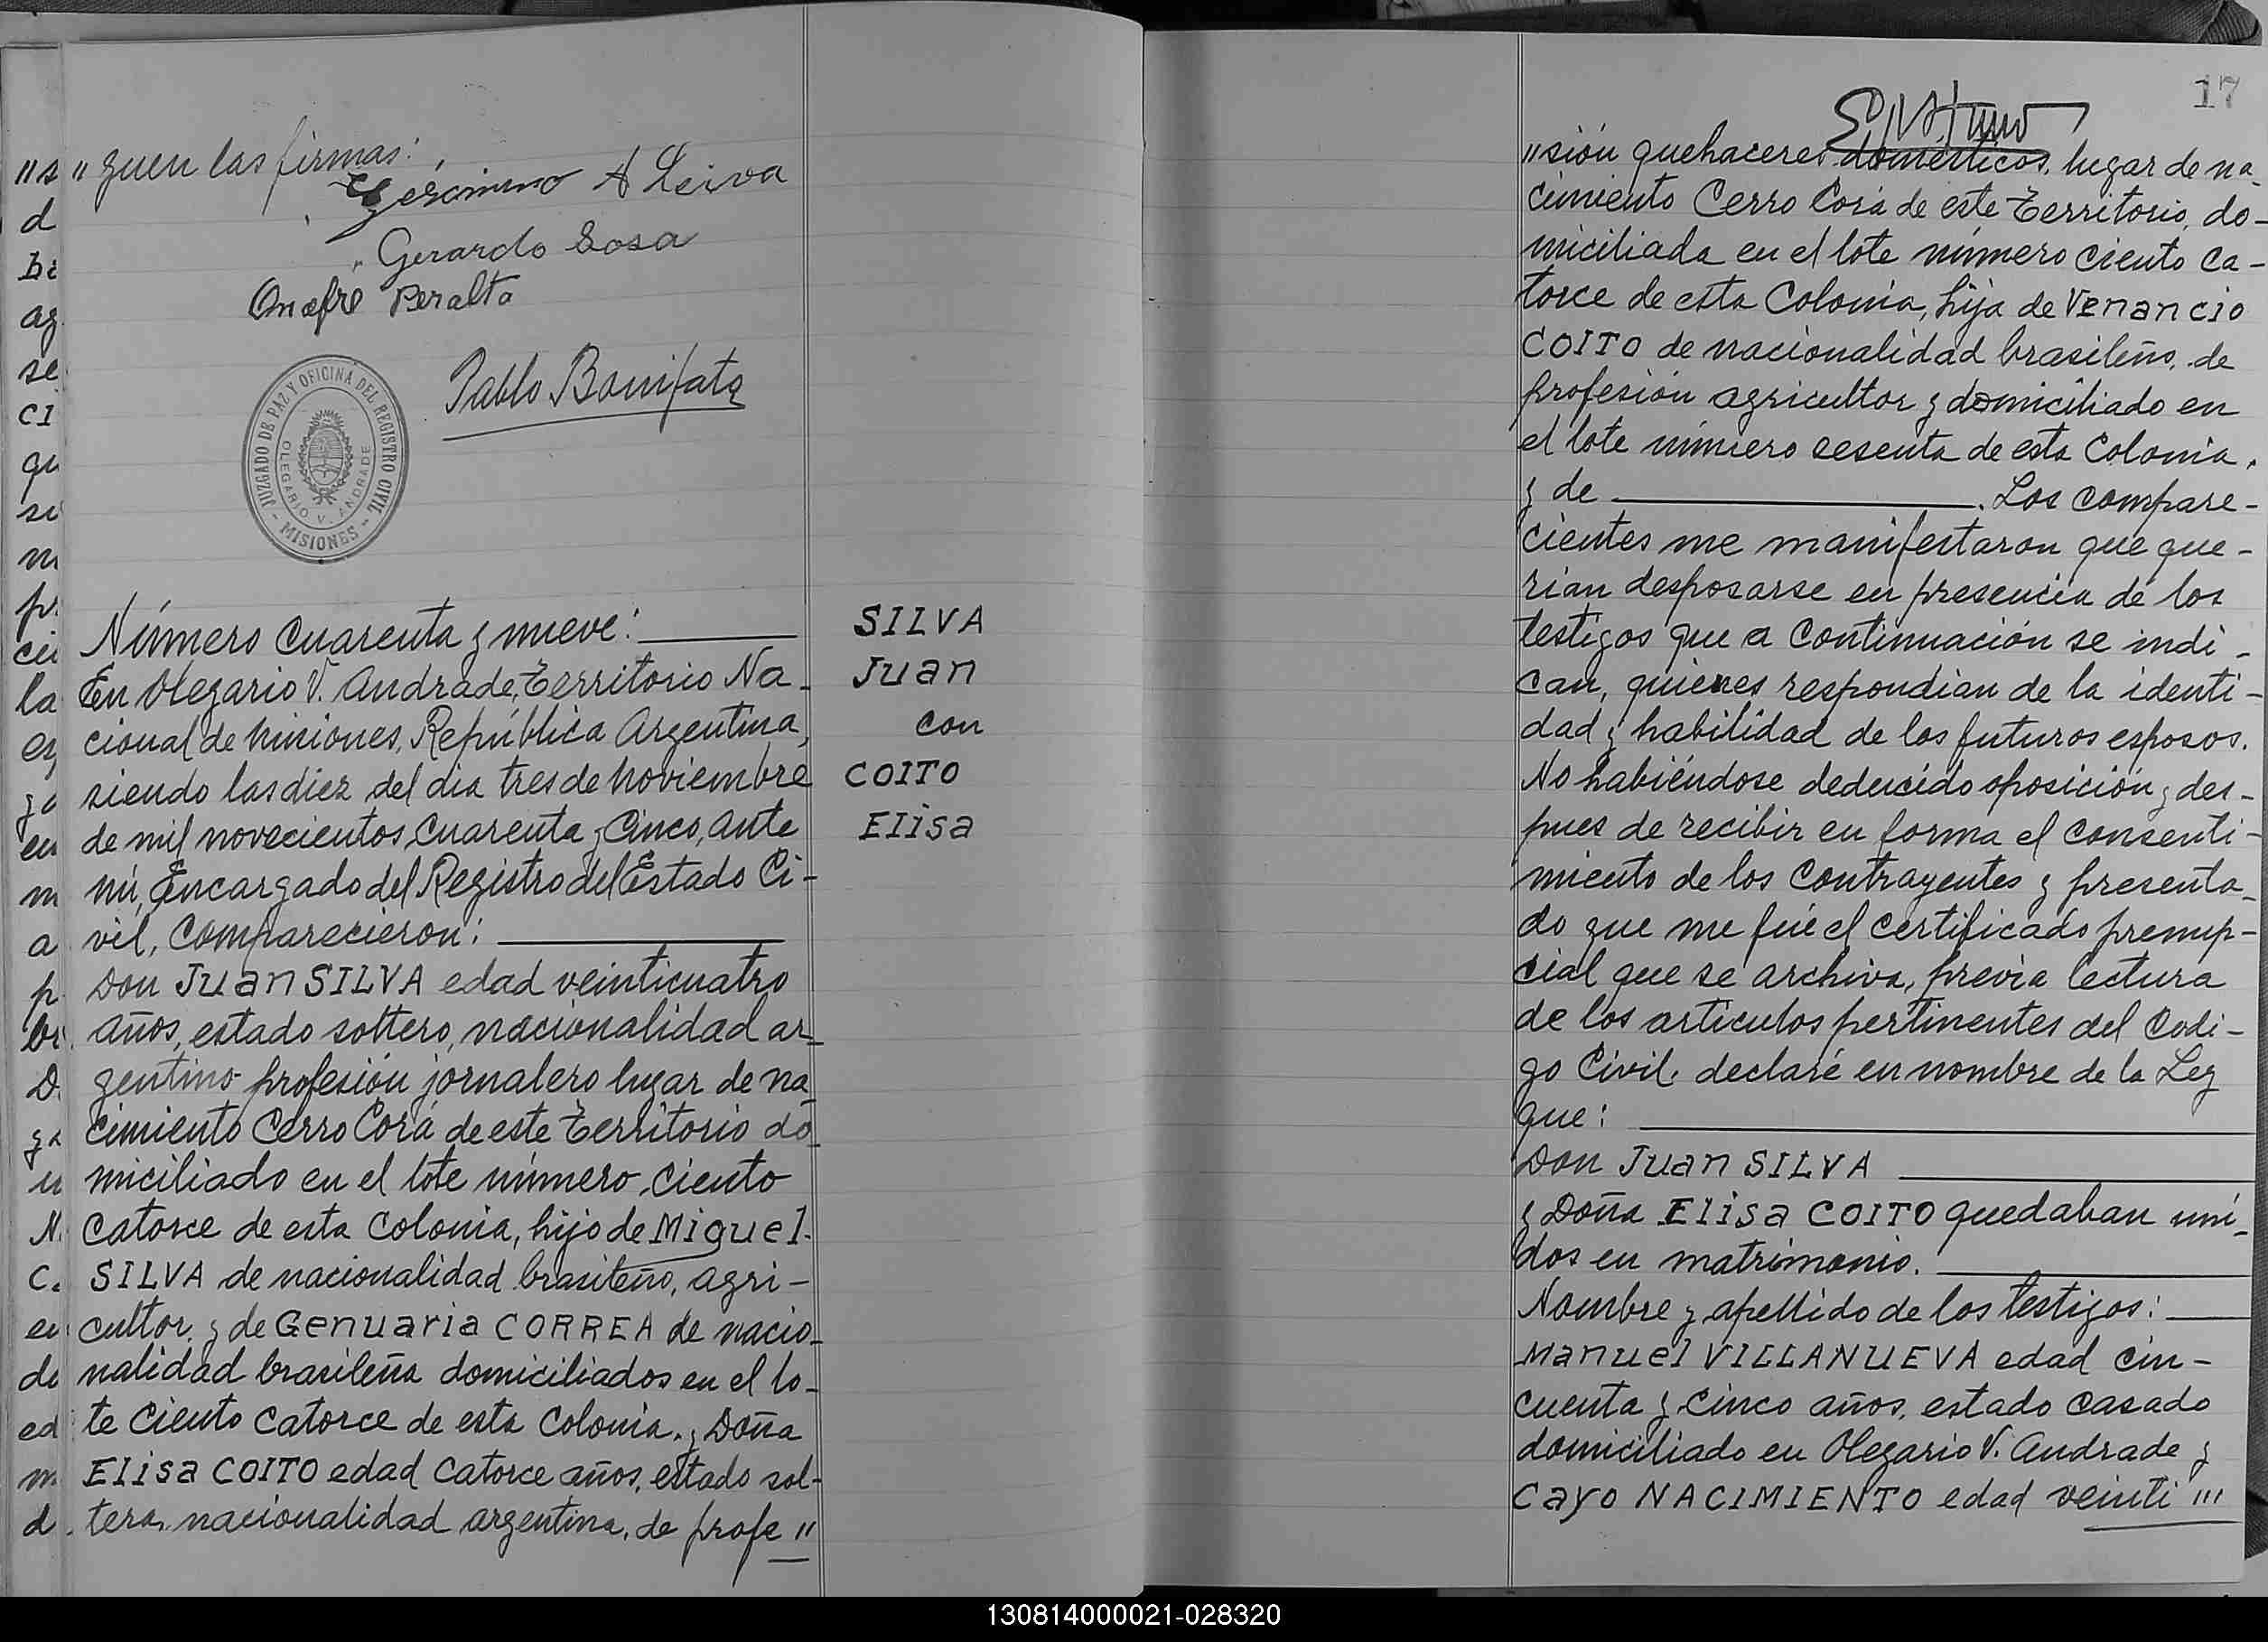 " guen las firmas:
Gerónimo A Leiva
Gerardo Sosa
Onofre Peralta
Pablo Bonifato
JUZGADO DE PAZ Y OFICINA DEL REGISTRO CIVIL
OLEGARIO V. ANDRADE
- MISIONES -
Número cuarenta y nueve:
En Olegario V. Andrade, Territorio Na-
cional de Misiones, República Argentina,
siendo las diez del día tres de Noviembre
de mil novecientos cuarenta y Cinco, ante
mi, Encargado del Registro del Estado Ci-
vil, Comparecieron:
Don Juan SILVA edad veinticuatro
años, estado soltero, nacionalidad ar-
gentino profesión jornalero lugar de na-
cimiento Cerro Corá de este Territorio do-
miciliado en el lote número ciento
catorce de esta Colonia, hijo de Miguel
SILVA de nacionalidad brasileño, agri-
cultor y de Genuaria CORREA de nacio-
nalidad brasileña domiciliados en el lo-
te ciento catorce de esta Colonia. y Doña
Elisa COITO edad catorce años, estado sol-
tera, nacionalidad argentina, de profe "
SILVA
Juan
con
COITO
Elisa
17
"sión quehaceres domésticos, lugar de na-
cimiento Cerro Corá de este Territorio, do-
miciliada en el lote número ciento ca-
torce de esta Colonia, hija de Venancio
COITO de nacionalidad brasileño, de
profesión agricultor y domiciliado en
el lote número sesenta de esta Colonia.
y de . Los compare-
cientes me manifestaron que que-
rían desposarse en presencia de los
testigos que a continuación se indi-
can, quienes respondian de la identi-
dad y habilidad de los futuros esposos.
No habiéndose deducido oposición y des-
pues de recibir en forma el consenti-
miento de los Contrayentes y presenta-
do que me fué el certificado prenup-
cial que se archiva, previa lectura
de los artículos pertinentes del Codi-
go Civil. declaré en nombre de la Ley
que:
Don Juan SILVA
y Doña Elisa COITO quedaban uni-
dos en matrimonio.
Nombre y apellido de los testigos:
Manuel VILLANUEVA edad cin-
cuenta y cinco años, estado casado
domiciliado en Olegario V. Andrade y
Cayo NACIMIENTO edad veinti "'
130814000021-028320